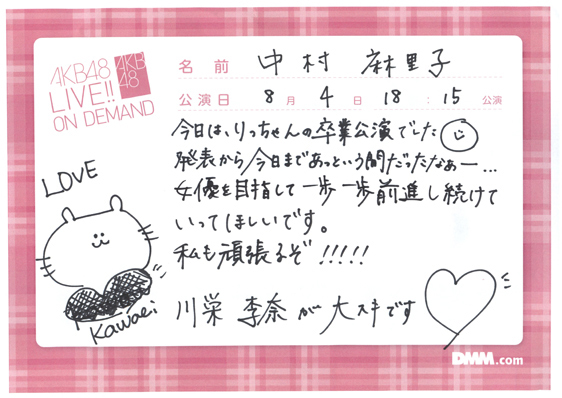 AKB48
LIVE!!
ON DEMAND
AKB
48
名前 中村 麻里子
公演日 8月4日 18:15公演
今日は、りっちゃんの卒業公演でした
発表から今日まであっという間だったなぁー…
女優を目指して一歩一歩前進し続けて
いってほしいです。
私も頑張るぞ!!!!!
LOVE
Kawaei
川栄 李奈が大スキです
DMM.com